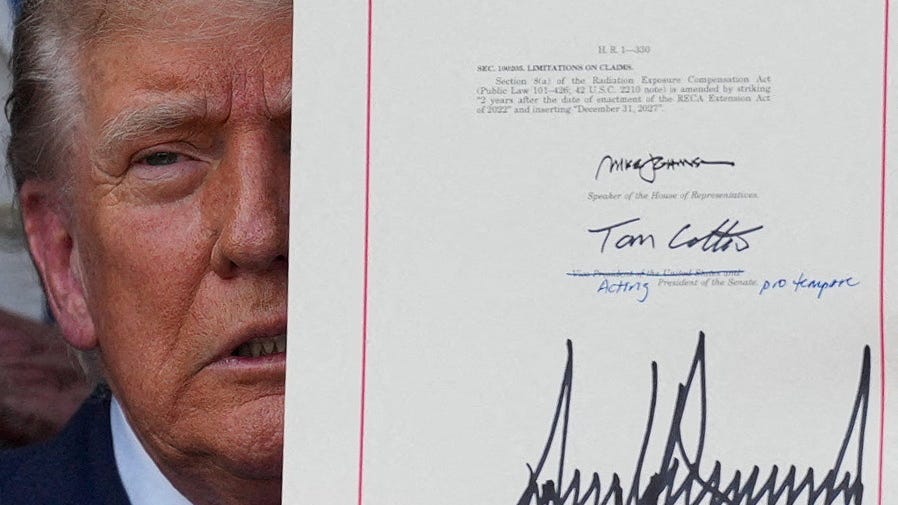 H. R. 1—330
SEC. 100205. LIMITATIONS ON CLAIMS.
Section 8(a) of the Radiation Exposure Compensation Act
(Public Law 101–426; 42 U.S.C. 2210 note) is amended by striking
“2 years after the date of enactment of the RECA Extension Act
of 2022” and inserting “December 31, 2027”.
Mike Johnson
Speaker of the House of Representatives.
Tom Cotton
Vice President of the United States and
Acting President of the Senate. pro tempore